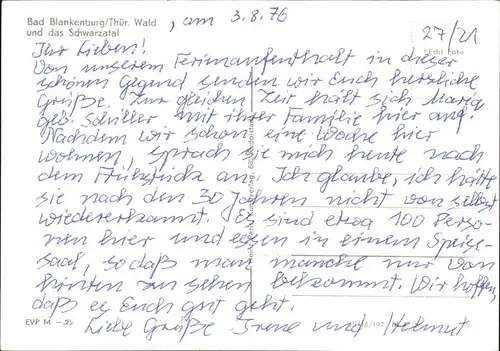 Bad Blankenburg/Thür. Wald , am 3.8.76
und das Schwarzatal
27/21
Ihr Lieben!
Von unserem Ferienaufenthalt in dieser
schönen Gegend senden wir Euch herzliche
Grüße. Zur gleichen Zeit hält sich Maria
geb. Schiller mit ihrer Familie hier auf.
Nachdem wir schon eine Woche hier
wohnen, sprach sie mich heute nach
dem Frühstück an. Ich glaube, ich hätte
sie nach den 30 Jahren nicht von selbst
wiedererkannt. Es sind etwa 100 Perso-
nen hier und essen in einem Speise-
saal, so daß man manche nur von
hinten zu sehen bekommt. Wir hoffen,
daß es Euch gut geht.
EVP M –.25
Liebe Grüße Irene und Helmut